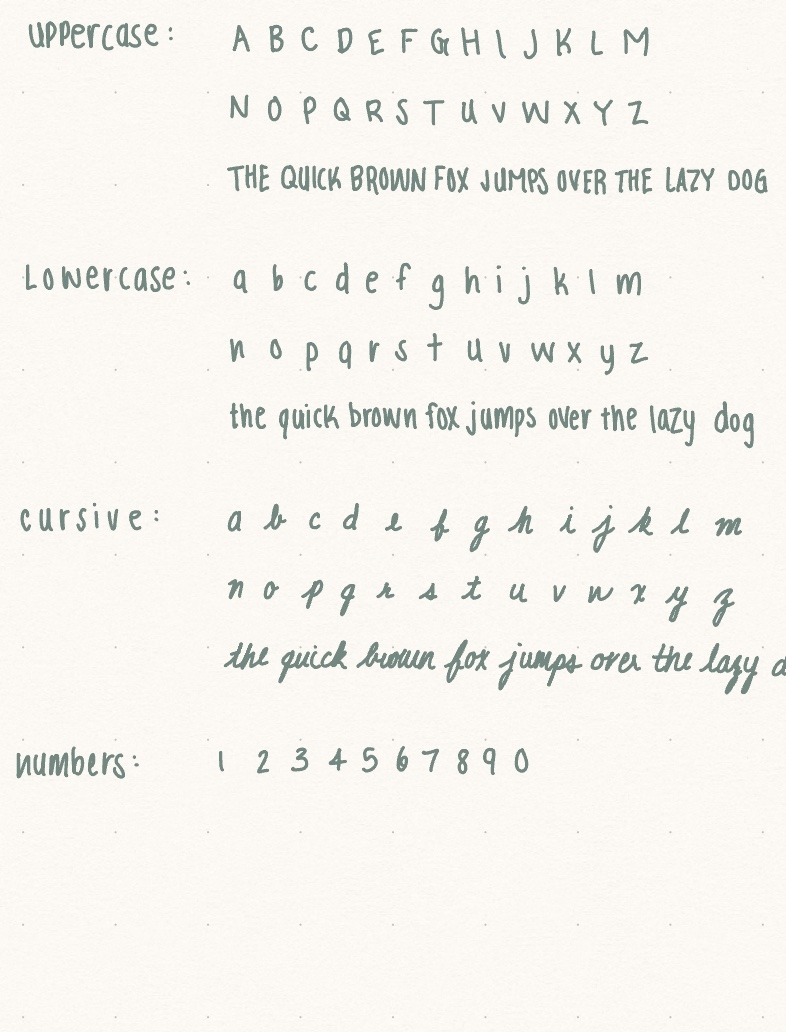 uppercase: A B C D E F G H I J K L M
N O P Q R S T U V W X Y Z
THE QUICK BROWN FOX JUMPS OVER THE LAZY DOG
Lowercase: a b c d e f g h i j k l m
n o p q r s t u v w x y z
the quick brown fox jumps over the lazy dog
cursive: a b c d e f g h i j k l m
n o p q r s t u v w x y z
the quick brown fox jumps over the lazy d
numbers: 1 2 3 4 5 6 7 8 9 0